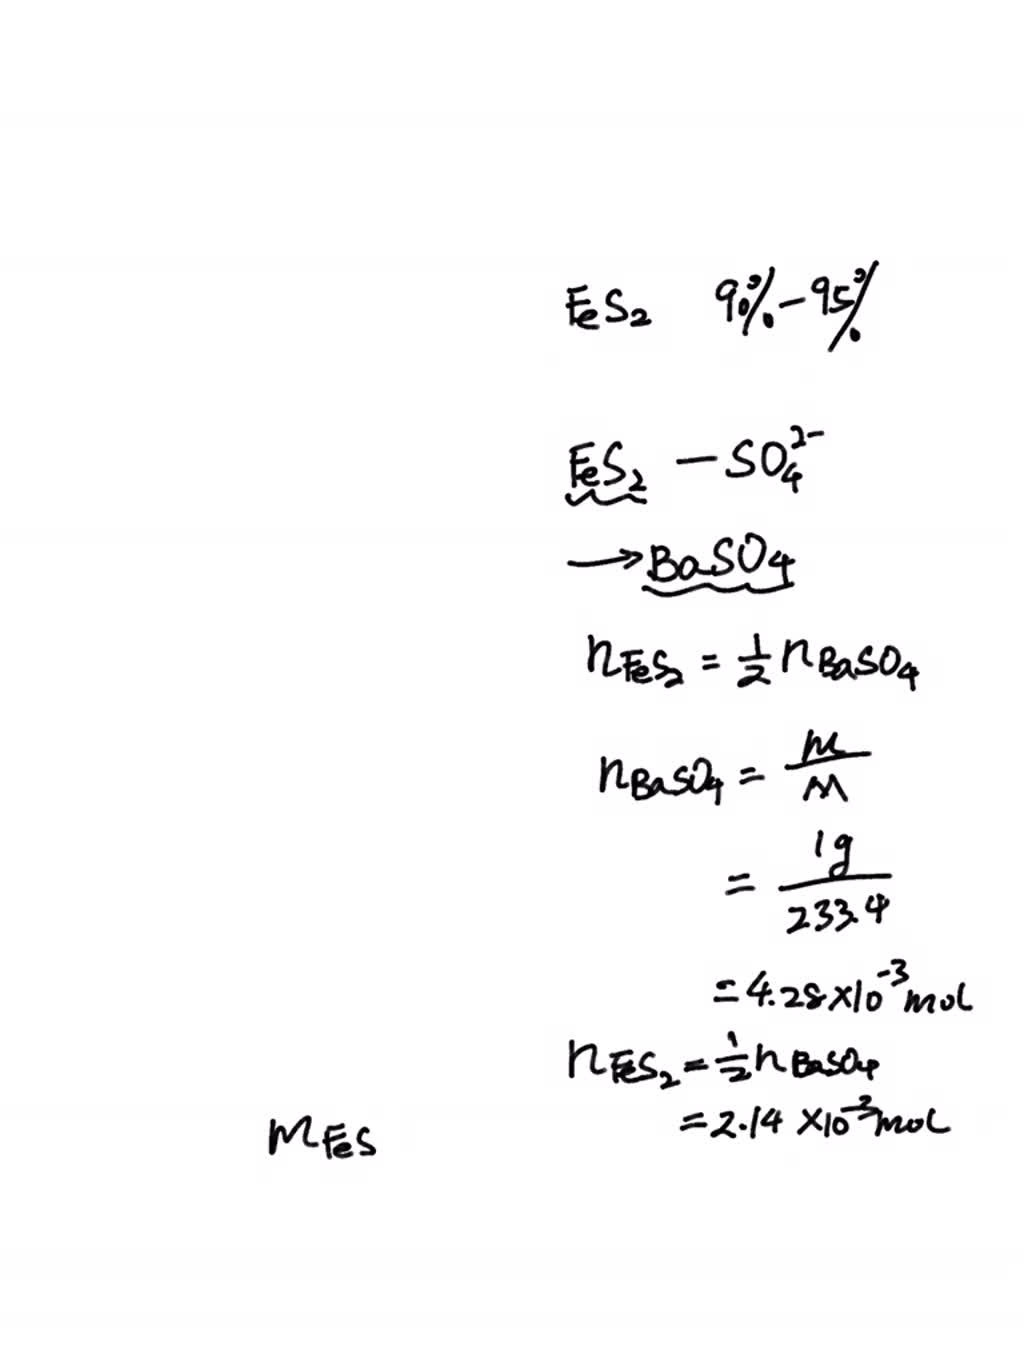 FeS₂ 90%-95%
FeS₂ - SO₄²⁻
→ BaSO₄
n FeS₂ = 1/2 n BaSO₄
n BaSO₄ = m/M
= 1g/233.4
= 4.28×10⁻³ mol
n FeS₂ = 1/2 n BaSO₄
= 2.14 ×10⁻³ mol
m FeS